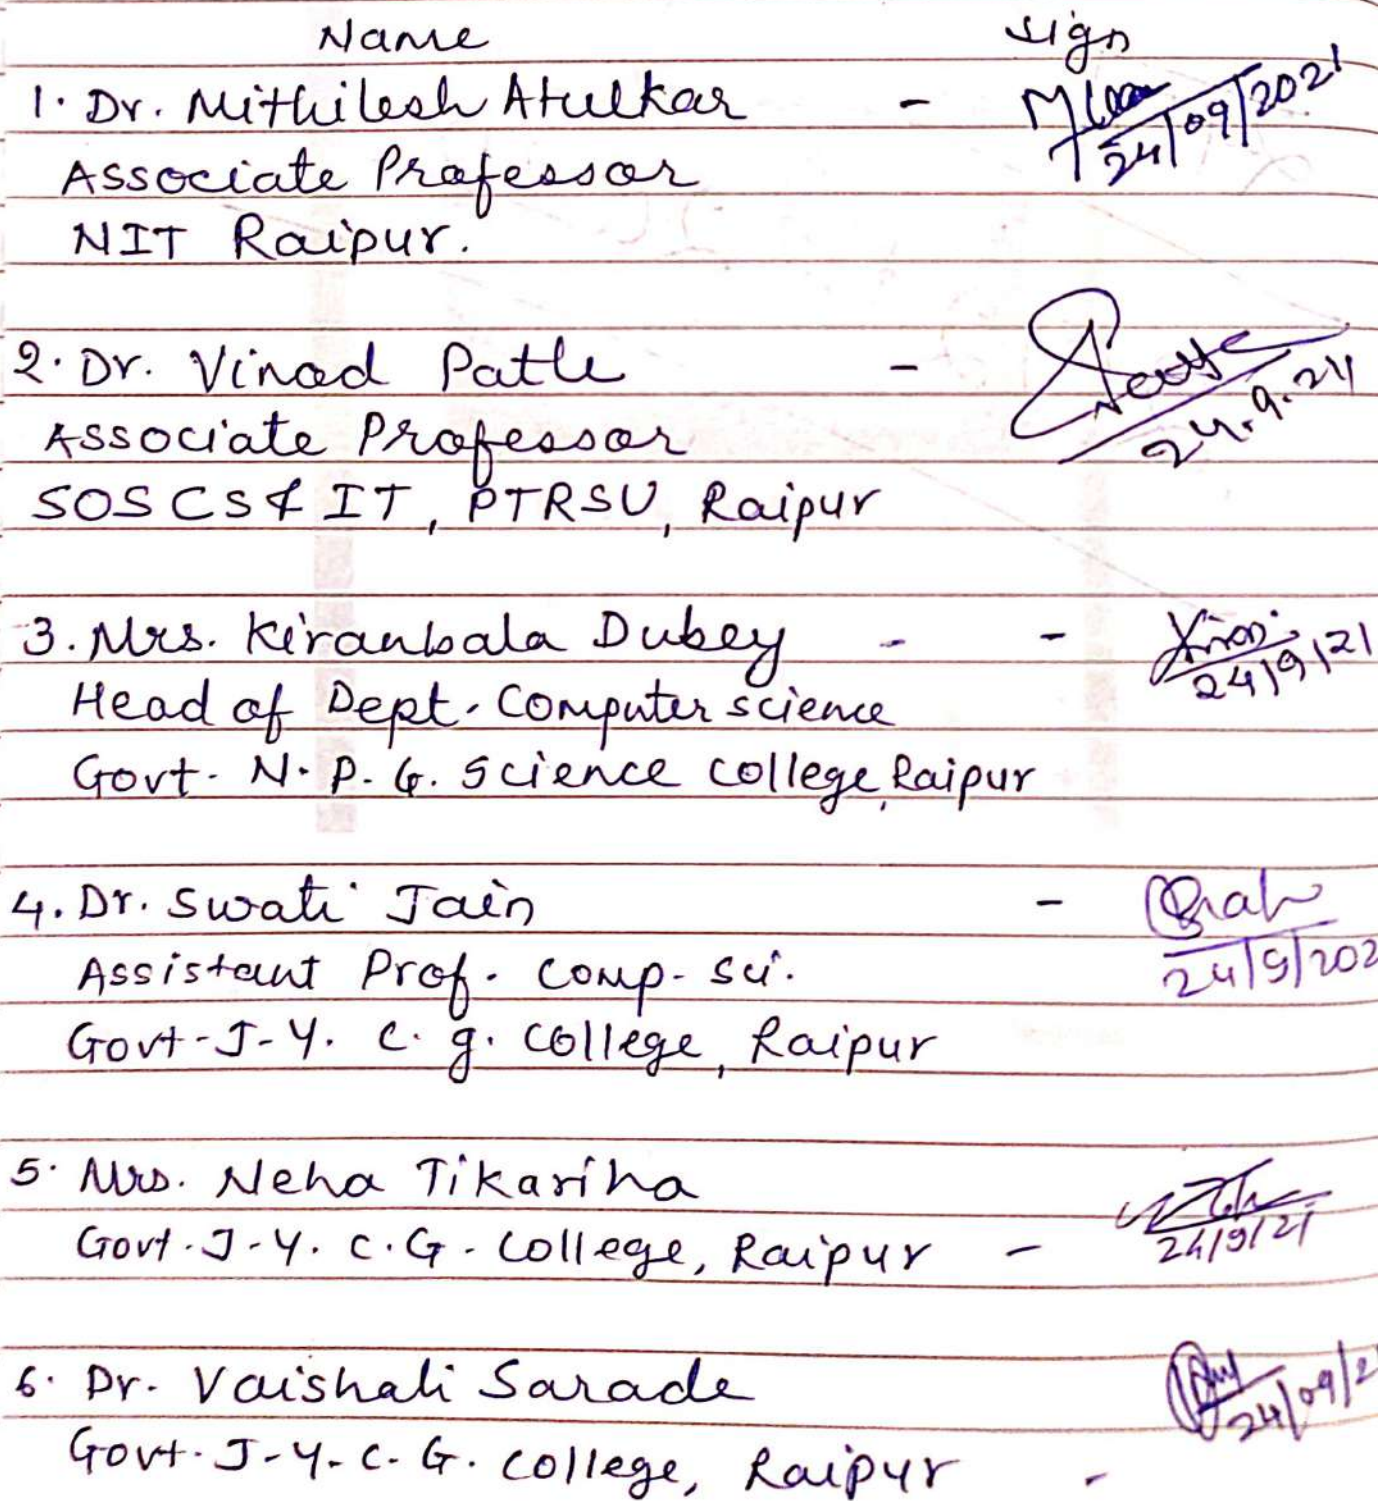 Name sign
1. Dr. Mithilesh Atulkar - 24/09/2021
Associate Professor
NIT Raipur.
2. Dr. Vinod Patle - 24.9.21
Associate Professor
SOS CS & IT, PTRSU, Raipur
3. Mrs. Kiranbala Dubey - - Kiran 24/9/21
Head of Dept. Computer science
Govt. N. P. G. Science college, Raipur
4. Dr. Swati Jain - 24/9/202
Assistant Prof. Comp. Sci.
Govt-J-Y. C. g. College, Raipur
5. Mrs. Neha Tikariha
Govt. J-Y. C.G. College, Raipur - 24/9/21
6. Dr. Vaishali Sarade 24/09/2
Govt. J-Y-C. G. College, Raipur -